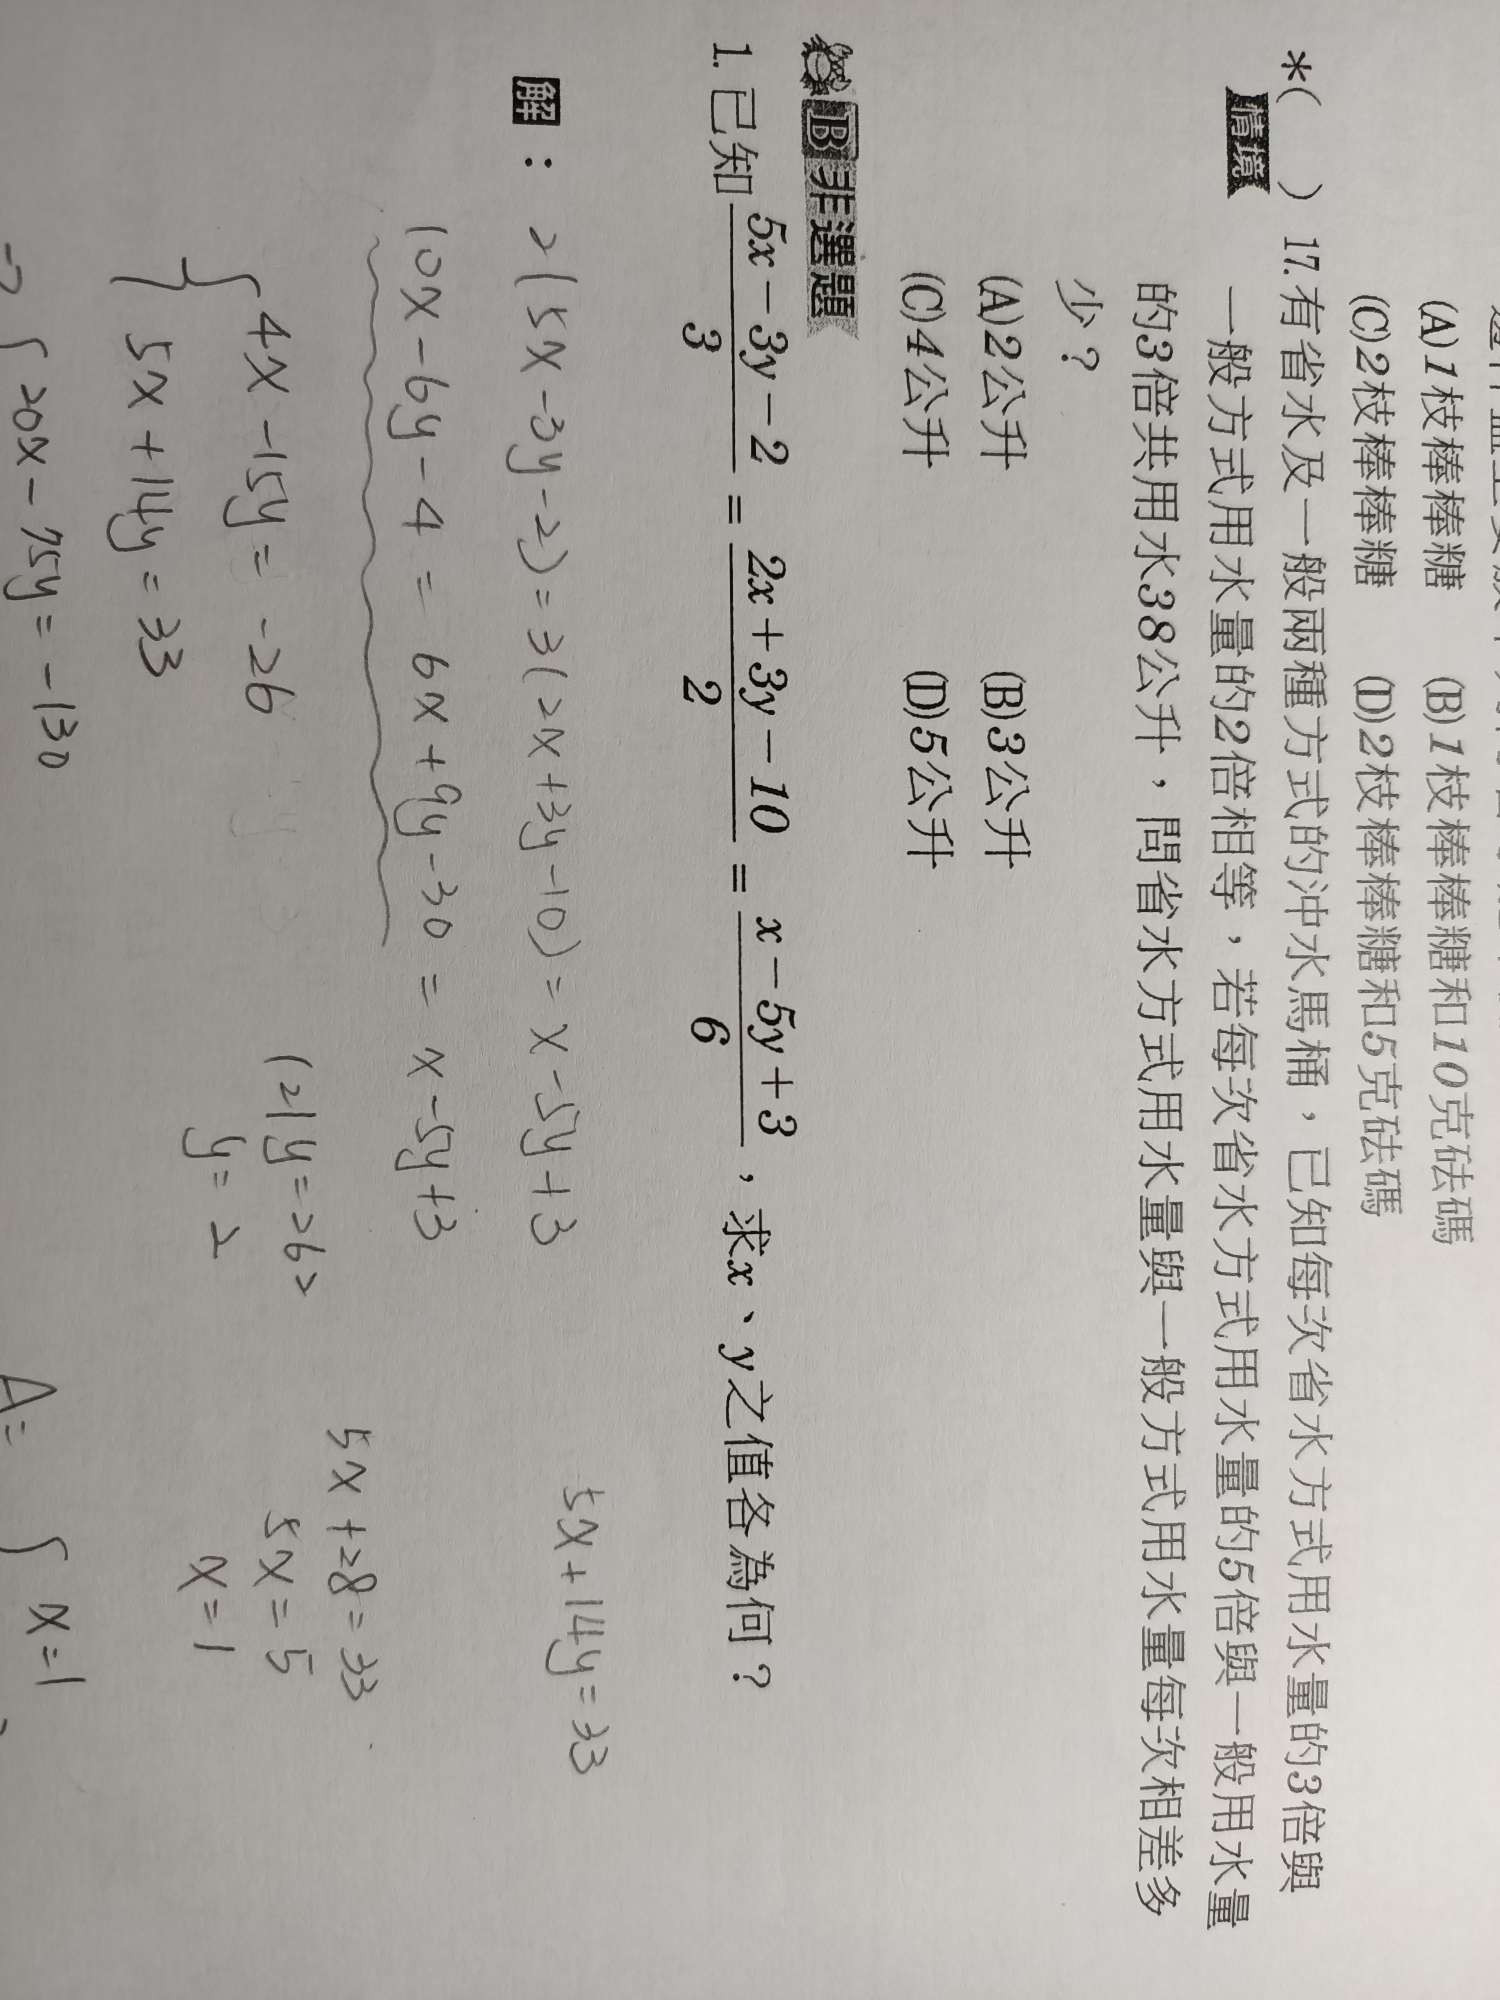 (A)1枝棒棒糖 (B)1枝棒棒糖和10克砝碼
(C)2枝棒棒糖 (D)2枝棒棒糖和5克砝碼
*( ) 17.有省水及一般兩種方式的沖水馬桶，已知每次省水方式用水量的3倍與
情境 一般方式用水量的2倍相等，若每次省水方式用水量的5倍與一般用水量
的3倍共用水38公升，問省水方式用水量與一般方式用水量每次相差多
少？
(A)2公升 (B)3公升
(C)4公升 (D)5公升
B 非選題
1. 已知 (5x－3y－2)/3 = (2x＋3y－10)/2 = (x－5y＋3)/6，求x、y之值各為何？
5x+14y=33
解：2(5x-3y-2)=3(2x+3y-10)=x-5y+3
10x-6y-4=6x+9y-30=x-5y+3
5x+28=33
4x-15y=-26
121y=262
5x=5
5x+14y=33
y=2
x=1
⇒{20x-75y=-130
A={x=1